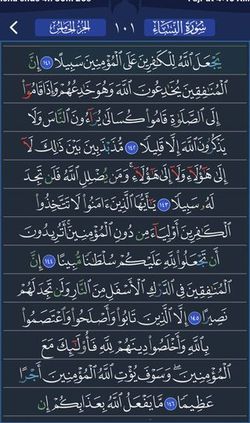 الجزء الخامس ١٠١ سورة النساء
يَجْعَلَ اللَّهُ لِلْكَافِرِينَ عَلَى الْمُؤْمِنِينَ سَبِيلًا ١٤١ إِنَّ
الْمُنَافِقِينَ يُخَادِعُونَ اللَّهَ وَهُوَ خَادِعُهُمْ وَإِذَا قَامُوا
إِلَى الصَّلَاةِ قَامُوا كُسَالَى يُرَاءُونَ النَّاسَ وَلَا
يَذْكُرُونَ اللَّهَ إِلَّا قَلِيلًا ١٤٢ مُذَبْذَبِينَ بَيْنَ ذَلِكَ لَا
إِلَى هَؤُلَاءِ وَلَا إِلَى هَؤُلَاءِ وَمَنْ يُضْلِلِ اللَّهُ فَلَنْ تَجِدَ
لَهُ سَبِيلًا ١٤٣ يَا أَيُّهَا الَّذِينَ آمَنُوا لَا تَتَّخِذُوا
الْكَافِرِينَ أَوْلِيَاءَ مِنْ دُونِ الْمُؤْمِنِينَ أَتُرِيدُونَ
أَنْ تَجْعَلُوا لِلَّهِ عَلَيْكُمْ سُلْطَانًا مُبِينًا ١٤٤ إِنَّ
الْمُنَافِقِينَ فِي الدَّرْكِ الْأَسْفَلِ مِنَ النَّارِ وَلَنْ تَجِدَ لَهُمْ
نَصِيرًا ١٤٥ إِلَّا الَّذِينَ تَابُوا وَأَصْلَحُوا وَاعْتَصَمُوا
بِاللَّهِ وَأَخْلَصُوا دِينَهُمْ لِلَّهِ فَأُولَئِكَ مَعَ
الْمُؤْمِنِينَ وَسَوْفَ يُؤْتِ اللَّهُ الْمُؤْمِنِينَ أَجْرًا
عَظِيمًا ١٤٦ مَا يَفْعَلُ اللَّهُ بِعَذَابِكُمْ إِنْ